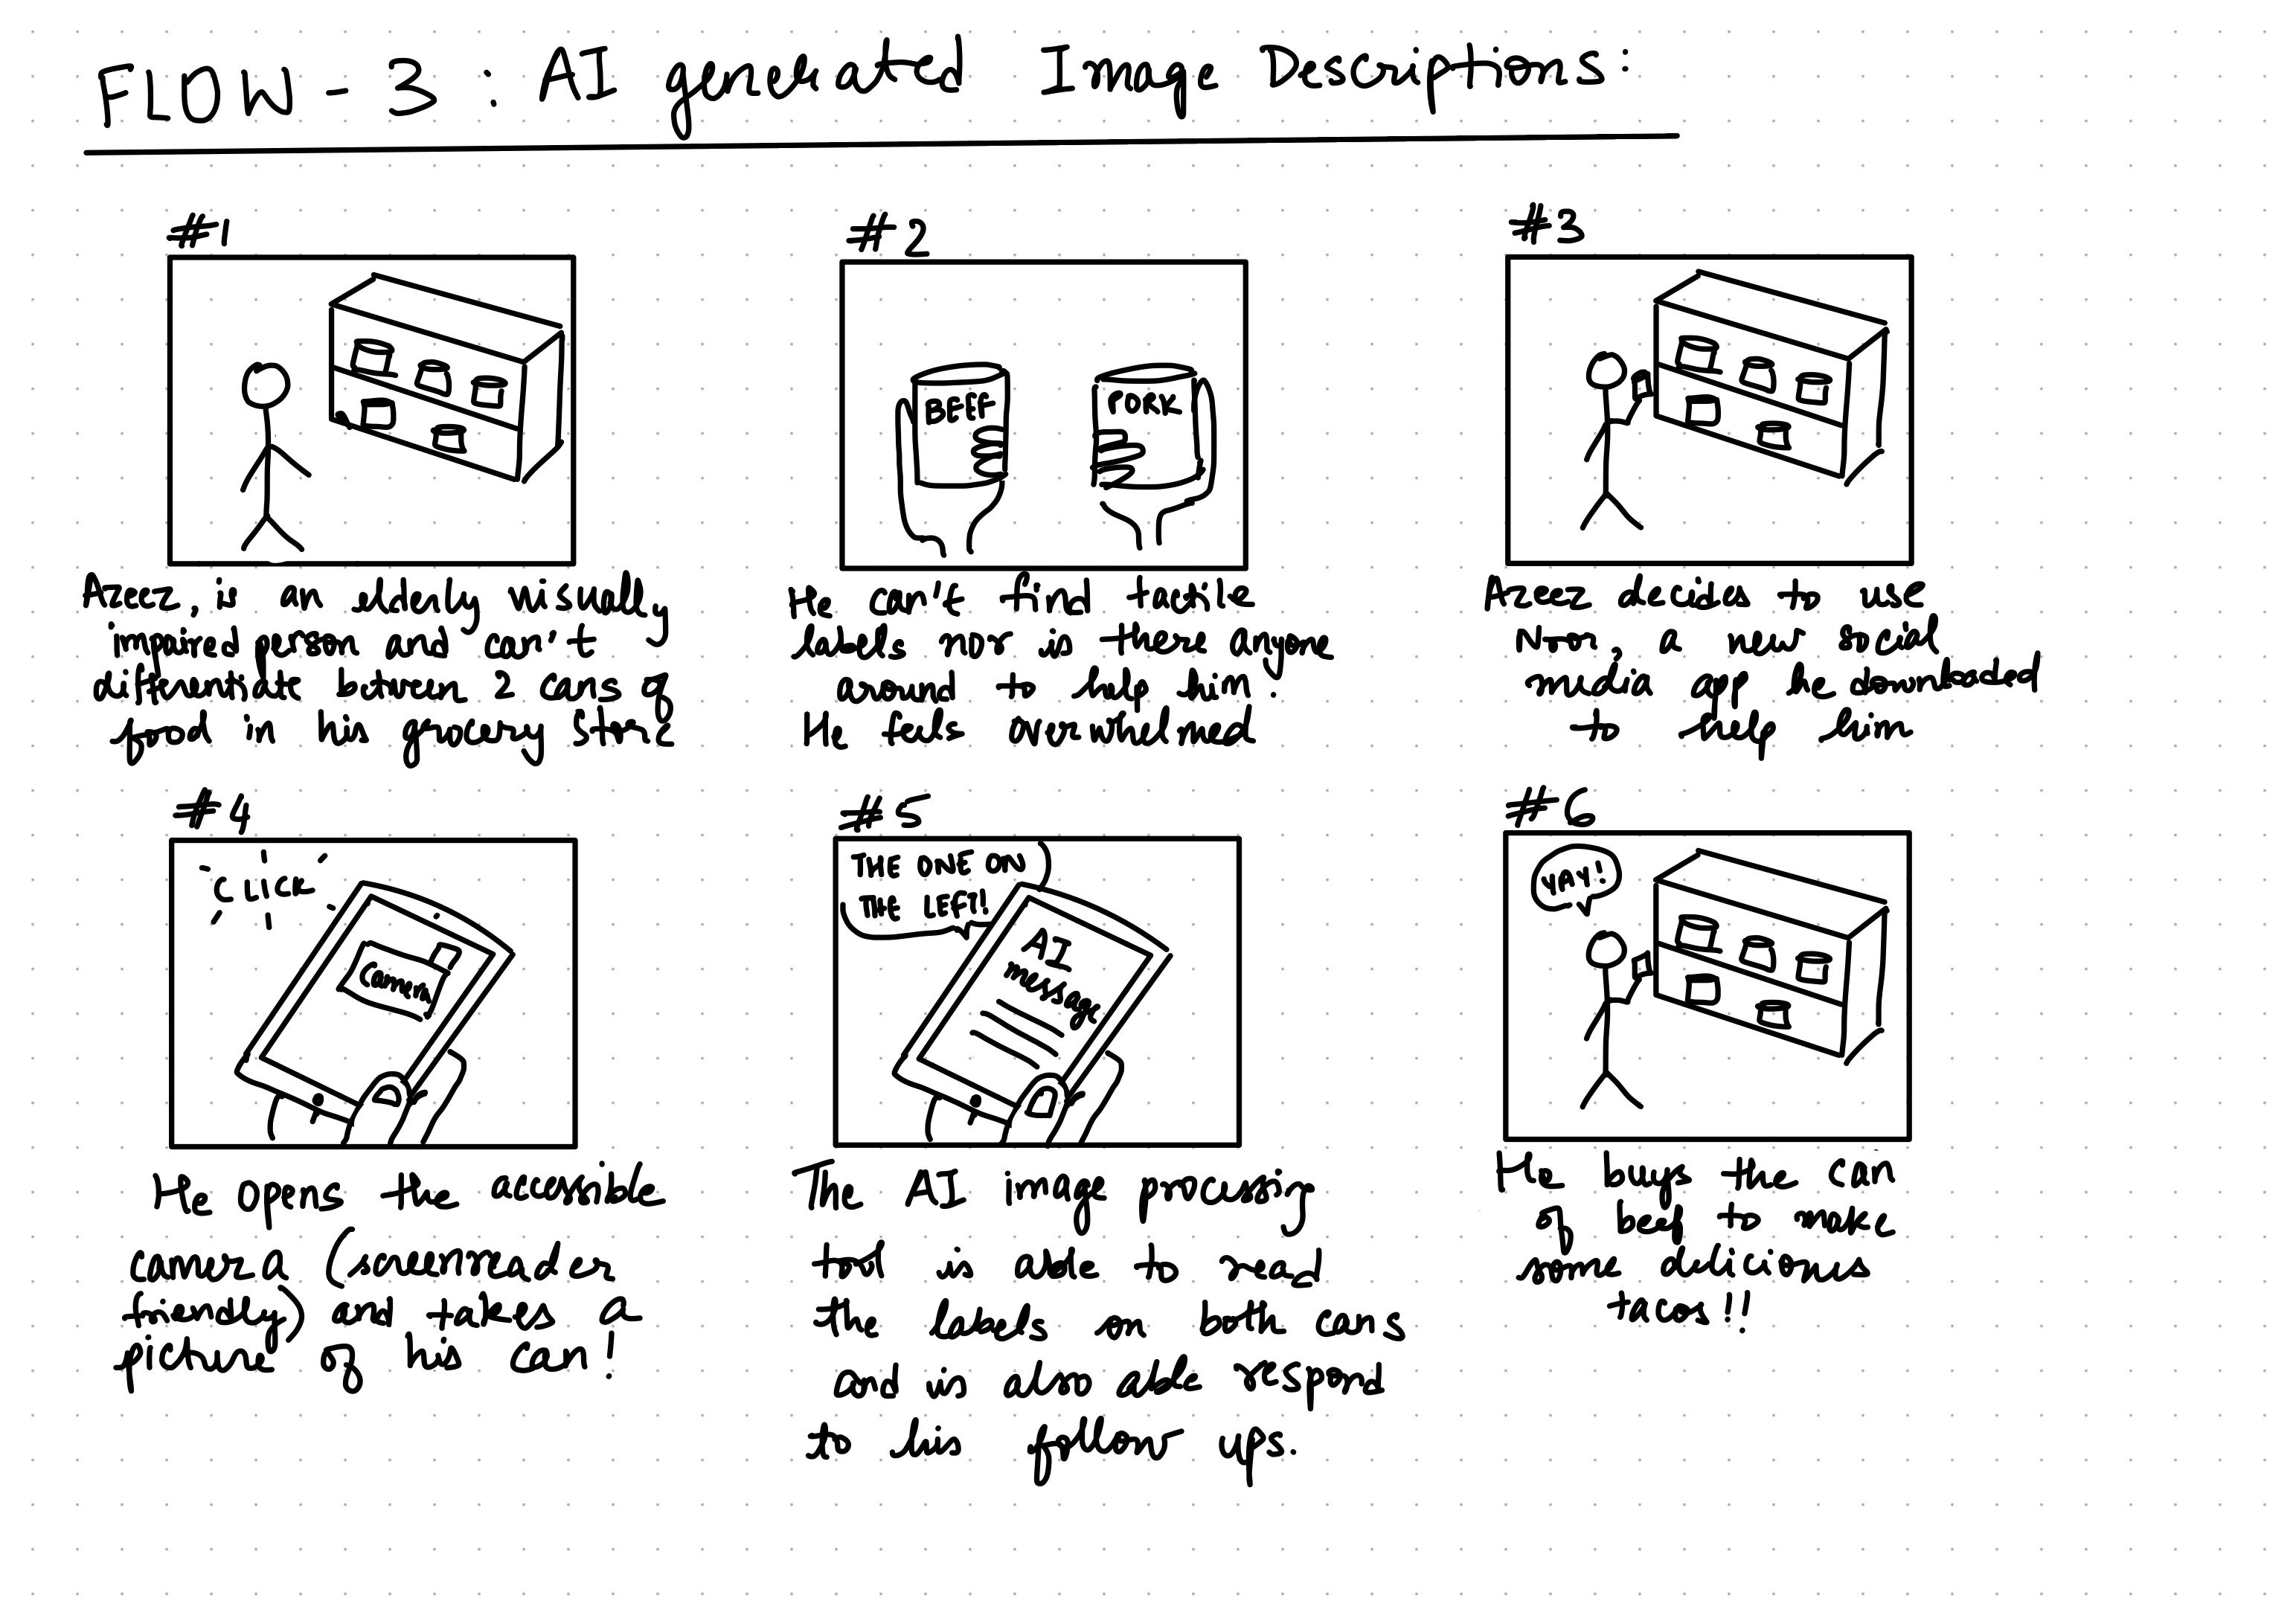 FLOW - 3 : AI generated Image Descriptions:
#1
Azeez, is an elderly visually
impaired person and can't
differentiate between 2 cans of
food in his grocery store
#2
BEEF
PORK
He can't find tactile
labels nor is there anyone
around to help him.
He feels overwhelmed
#3
Azeez decides to use
Noor, a new social
media app he downloaded
to help him
#4
CLICK
Camera
He opens the accessible
camera (screenreader
friendly) and takes a
picture of his can!
#5
THE ONE ON
THE LEFT!
AI
message
The AI image processing
tool is able to read
the labels on both cans
and is also able respond
to his follow ups.
#6
YAY!
He buys the can
of beef to make
some delicious
tacos!!